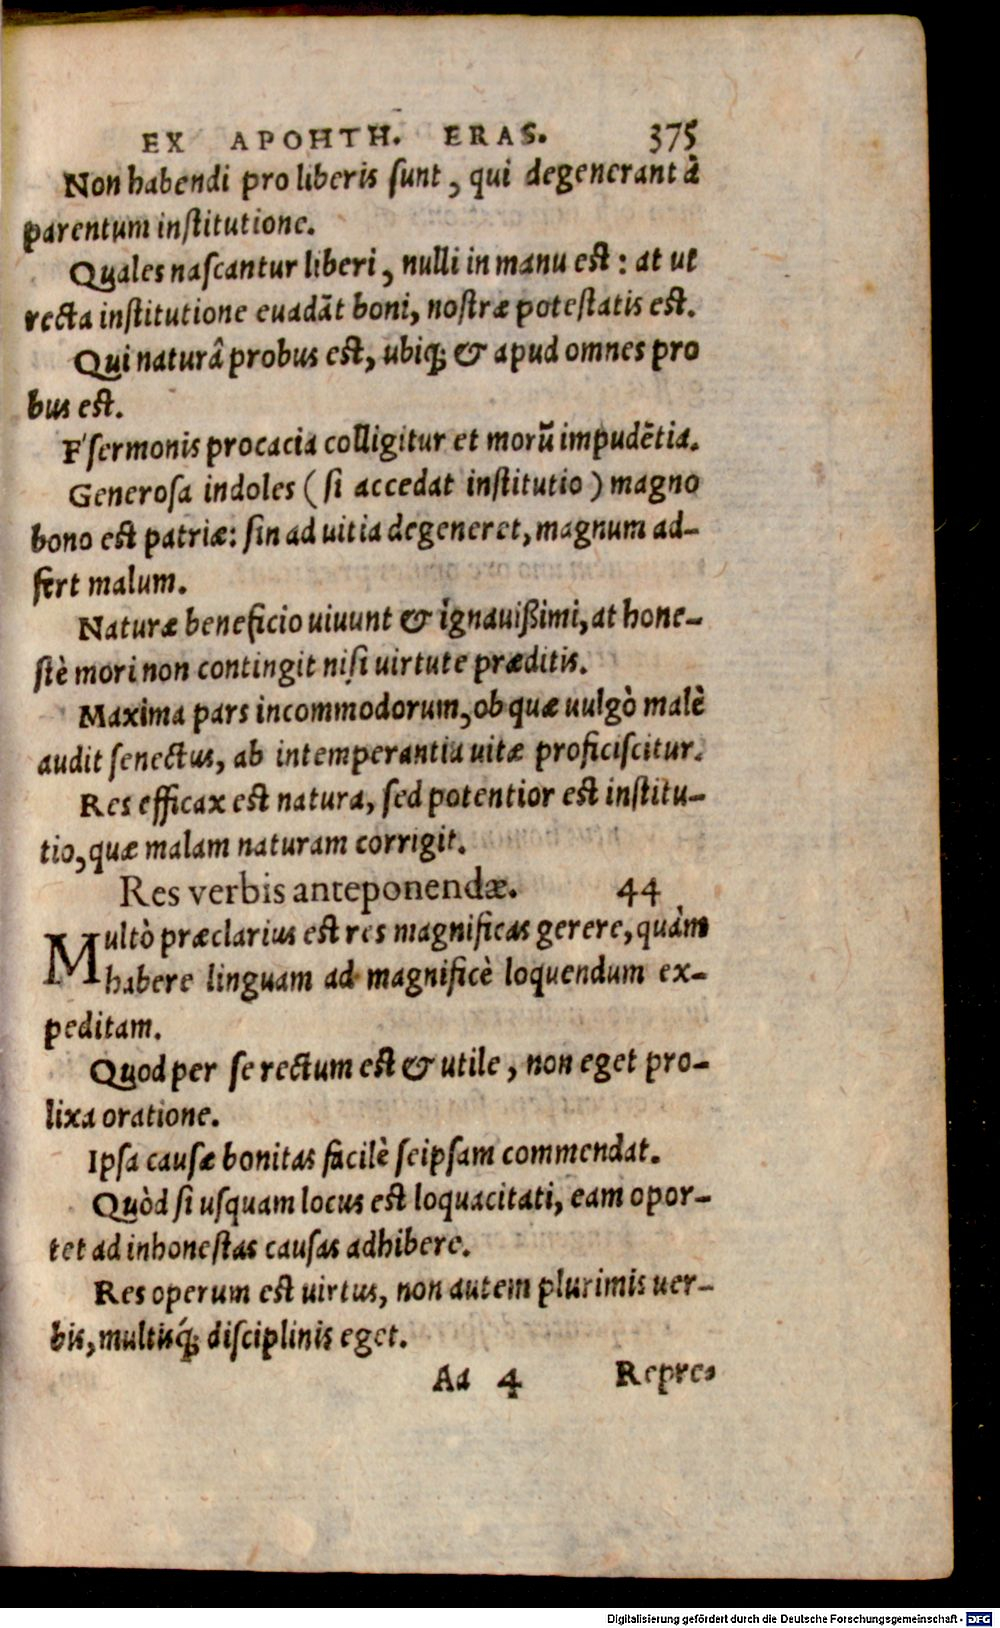 EX APOHTH. ERAS. 375
Non habendi pro liberis ſunt, qui degenerant à
parentum inſtitutione.
Quales naſcantur liberi, nulli in manu eſt: at ut
recta inſtitutione euadãt boni, noſtræ poteſtatis eſt.
Qui naturâ probus eſt, ubiq́; & apud omnes pro
bus eſt.
E' ſermonis procacia colligitur et morũ impudẽtia.
Generoſa indoles (ſi accedat inſtitutio) magno
bono eſt patriæ: ſin ad uitia degeneret, magnum ad-
fert malum.
Naturæ beneficio uiuunt & ignauißimi, at hone-
ſtè mori non contingit niſi uirtute præditis.
Maxima pars incommodorum, ob quæ uulgò malè
audit ſenectus, ab intemperantia uitæ proficiſcitur.
Res efficax eſt natura, ſed potentior eſt inſtitu-
tio, quæ malam naturam corrigit.
Res verbis anteponendæ. 44
Multò præclarius eſt res magnificas gerere, quàm
habere linguam ad magnificè loquendum ex-
peditam.
Quod per ſe rectum eſt & utile, non eget pro-
lixa oratione.
Ipſa cauſæ bonitas facilè ſeipſam commendat.
Quòd ſi uſquam locus eſt loquacitati, eam opor-
tet ad inhoneſtas cauſas adhibere.
Res operum eſt uirtus, non autem plurimis uer-
bis, multisq́; diſciplinis eget.
Aa 4 Repre-
Digitalisierung gefördert durch die Deutsche Forschungsgemeinschaft - DFG